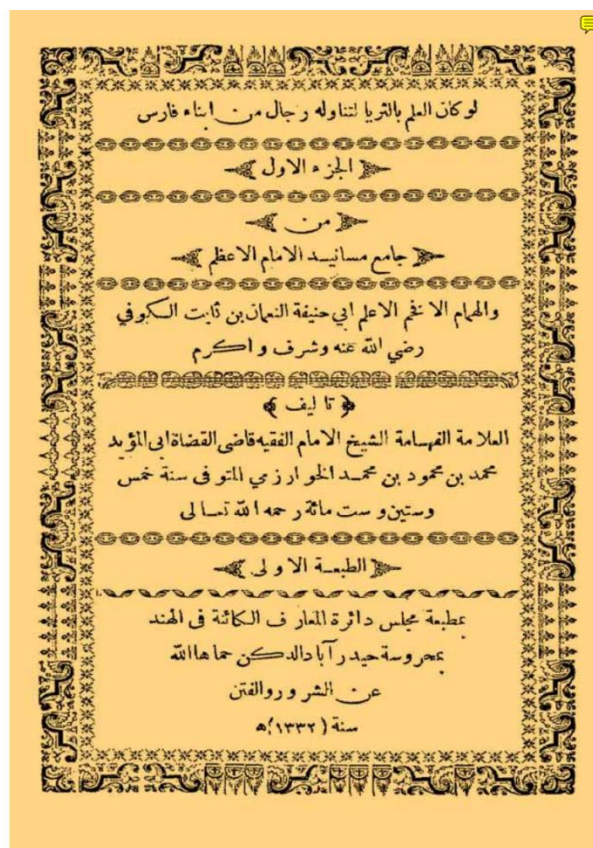 لو كان العلم بالثريا لتناوله رجال من ابناء فارس
الجزء الاول
من
جامع مسانيد الامام الاعظم
والهمام الافخم الاعلم ابي حنيفة النعمان بن ثابت الكوفي
رضي الله عنه وشرف واكرم
تاليف
العلامة الفهامة الشيخ الامام الفقيه قاضى القضاة ابى المؤيد
محمد بن محمود بن محمد الخوارزمي المتوفى سنة خمس
وستين وست مائة رحمه الله تعالى
الطبعة الاولى
بمطبعة مجلس دائرة المعارف الكائنة فى الهند
بمحروسة حيدر آباد الدكن حماها الله
عن الشرور والفتن
سنة (١٣٣٢)ه